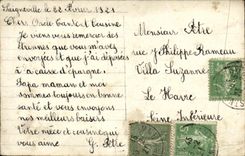 Saigneville le 22 Février 1921
Chers Oncle Tante et Cousine
Je viens vous remercier des
étrennes que vous m'avez
envoyées et que j'ai déposées
à la caisse d'épargne.
Papa maman et moi
sommes toujours en bonne
santé et vous envoyons
nos meilleurs baisers
Votre nièce et cousine qui
vous aime G. Pètre
Monsieur Pètre
rue J Philippe Rameau
Villa Suzanne
Le Havre
Seine Inférieure